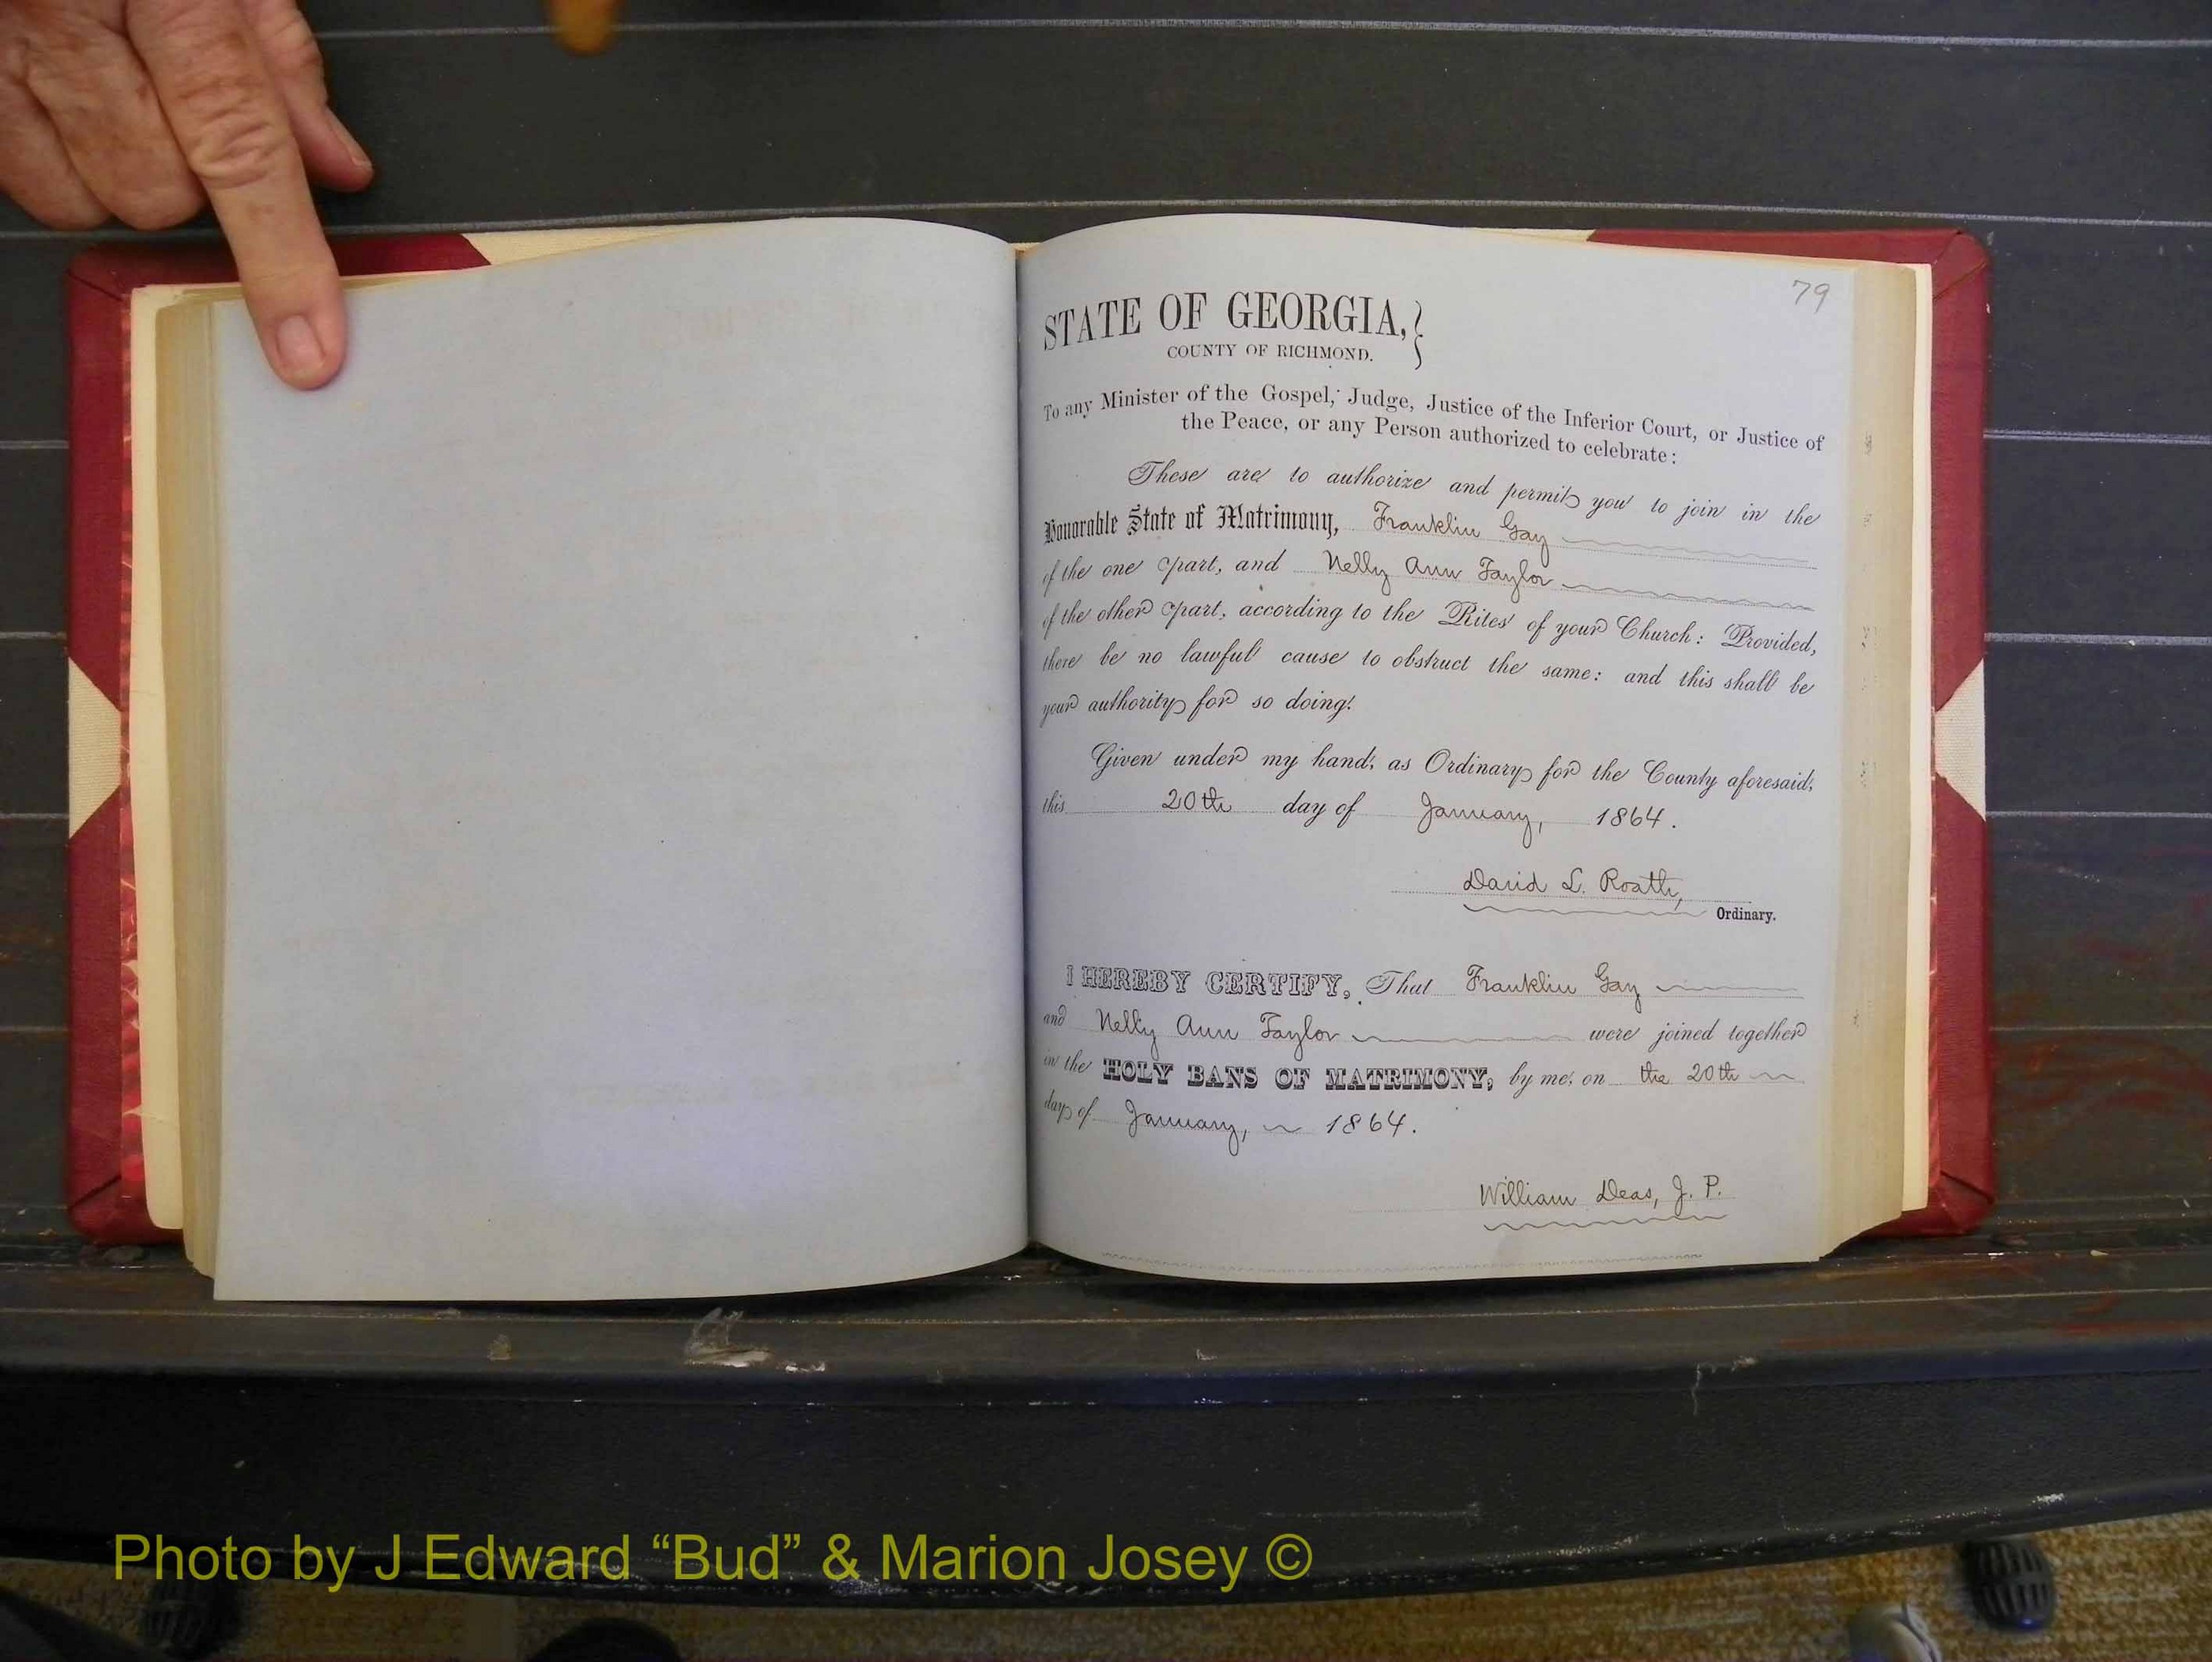 79
STATE OF GEORGIA,
COUNTY OF RICHMOND.
To any Minister of the Gospel, Judge, Justice of the Inferior Court, or Justice of
the Peace, or any Person authorized to celebrate:
These are to authorize and permit you to join in the
Honorable State of Matrimony, Franklin Gay
of the one part, and Nelly Ann Taylor
of the other part, according to the Rites of your Church: Provided,
there be no lawful cause to obstruct the same: and this shall be
your authority for so doing.
Given under my hand, as Ordinary for the County aforesaid,
this 20th day of January, 1864.
David L. Roath,
Ordinary.
I HEREBY CERTIFY, That Franklin Gay
and Nelly Ann Taylor were joined together
in the HOLY BANS OF MATRIMONY, by me, on the 20th
day of January, 1864.
William Deas, J. P.
Photo by J Edward “Bud” & Marion Josey ©